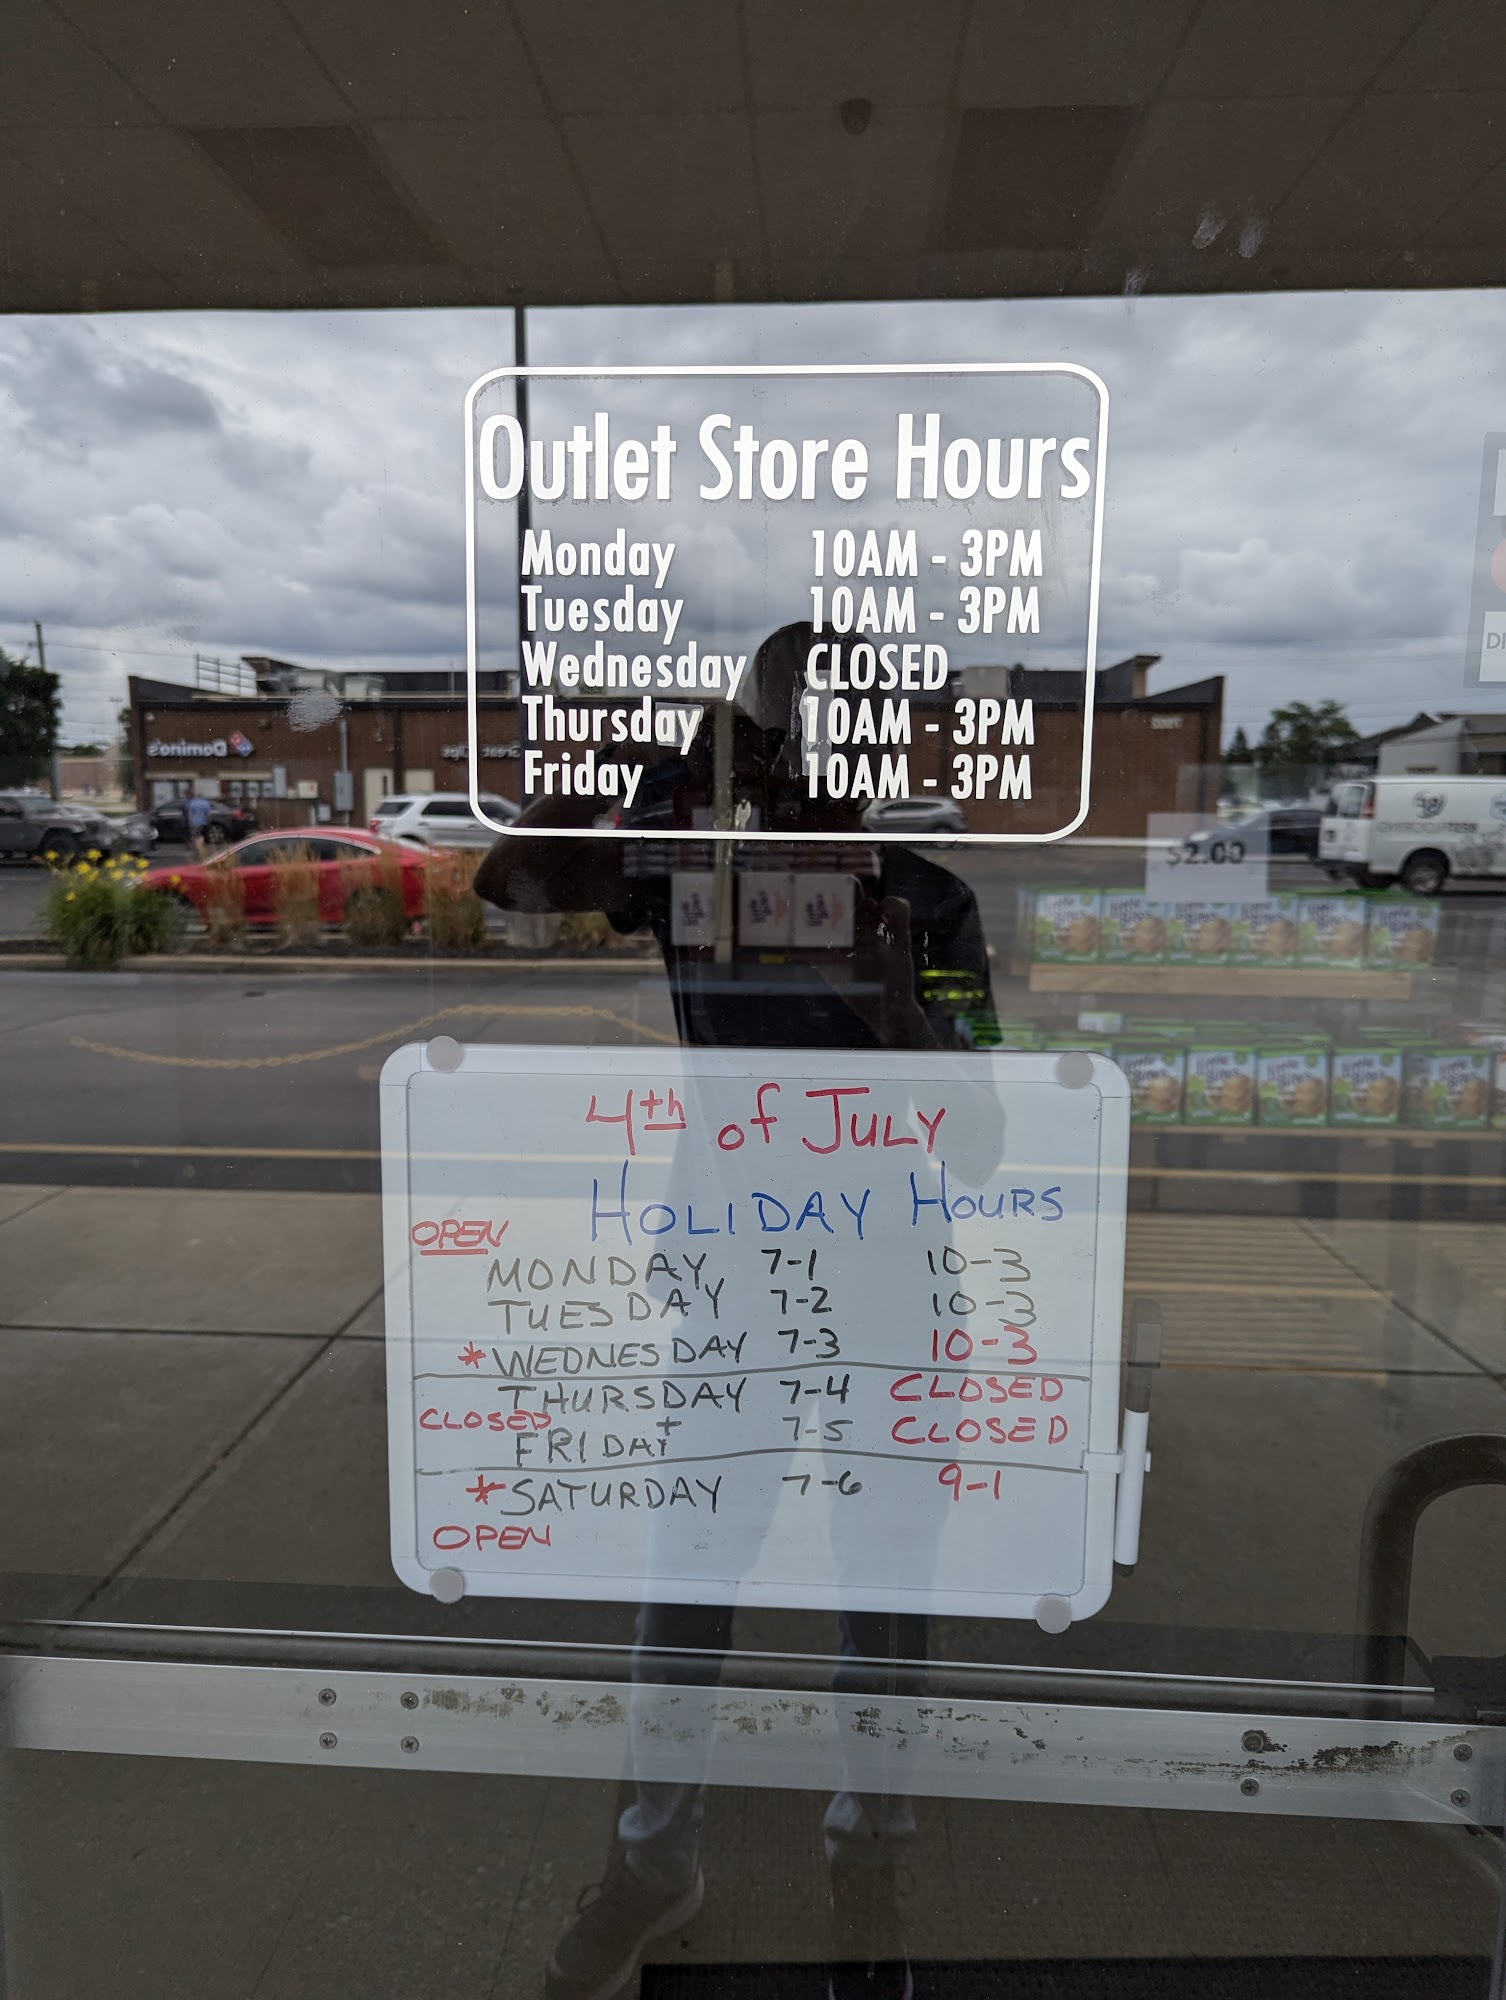 Outlet Store Hours
Monday 10AM - 3PM
Tuesday 10AM - 3PM
Wednesday CLOSED
Thursday 10AM - 3PM
Friday 10AM - 3PM
Domino's
Great Clips
$2.00
4th of JULY
HOLIDAY HOURS
OPEN
MONDAY 7-1 10-3
TUESDAY 7-2 10-3
*WEDNESDAY 7-3 10-3
THURSDAY 7-4 CLOSED
CLOSED +
FRIDAY 7-5 CLOSED
*SATURDAY 7-6 9-1
OPEN